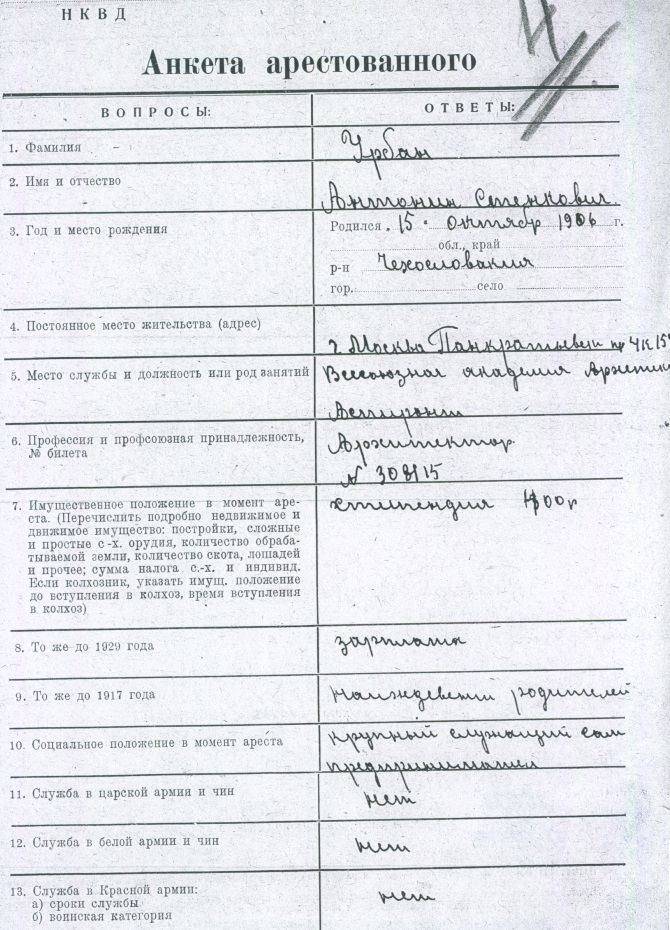 НКВД
Анкета арестованного
ВОПРОСЫ:
ОТВЕТЫ:
1. Фамилия
Урбан
2. Имя и отчество
Антонин
3. Год и место рождения
Родился 15 октябр 1906 г.
обл., край
р-н Чехословакия
гор. село
4. Постоянное место жительства (адрес)
г. Москва
5. Место службы и должность или род занятий
Всесоюзная академия
6. Профессия и профсоюзная принадлежность,
№ билета
Архитектор
7. Имущественное положение в момент аре-
ста. (Перечислить подробно недвижимое и
движимое имущество: постройки, сложные
и простые с.-х. орудия, количество обраба-
тываемой земли, количество скота, лошадей
и прочее; сумма налога с.-х. и индивид.
Если колхозник, указать имущ. положение
до вступления в колхоз, время вступления
в колхоз)
стипендия
8. То же до 1929 года
зарплата
9. То же до 1917 года
родителей
10. Социальное положение в момент ареста
крупный служащий
11. Служба в царской армии и чин
нет
12. Служба в белой армии и чин
нет
13. Служба в Красной армии:
а) сроки службы
б) воинская категория
нет